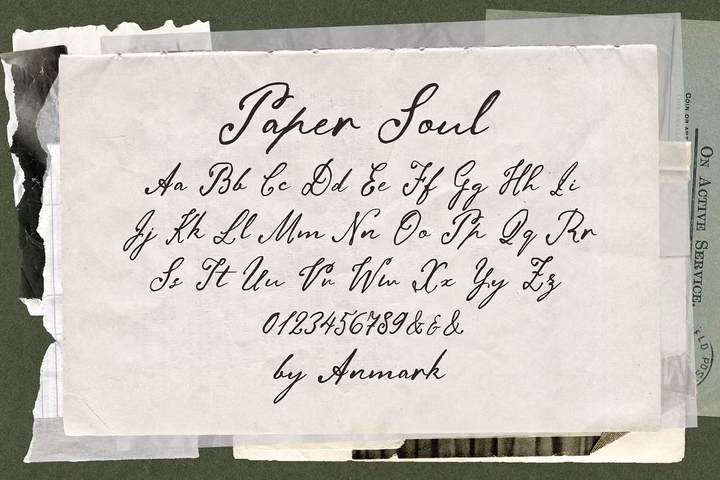 Paper Soul
Aa Bb Cc Dd Ee Ff Gg Hh Ii
Jj Kk Ll Mm Nn Oo Pp Qq Rr
Ss Tt Uu Vv Ww Xx Yy Zz
0123456789&&&
by Anmark
COIN OR
ON ACTIVE SERVICE.